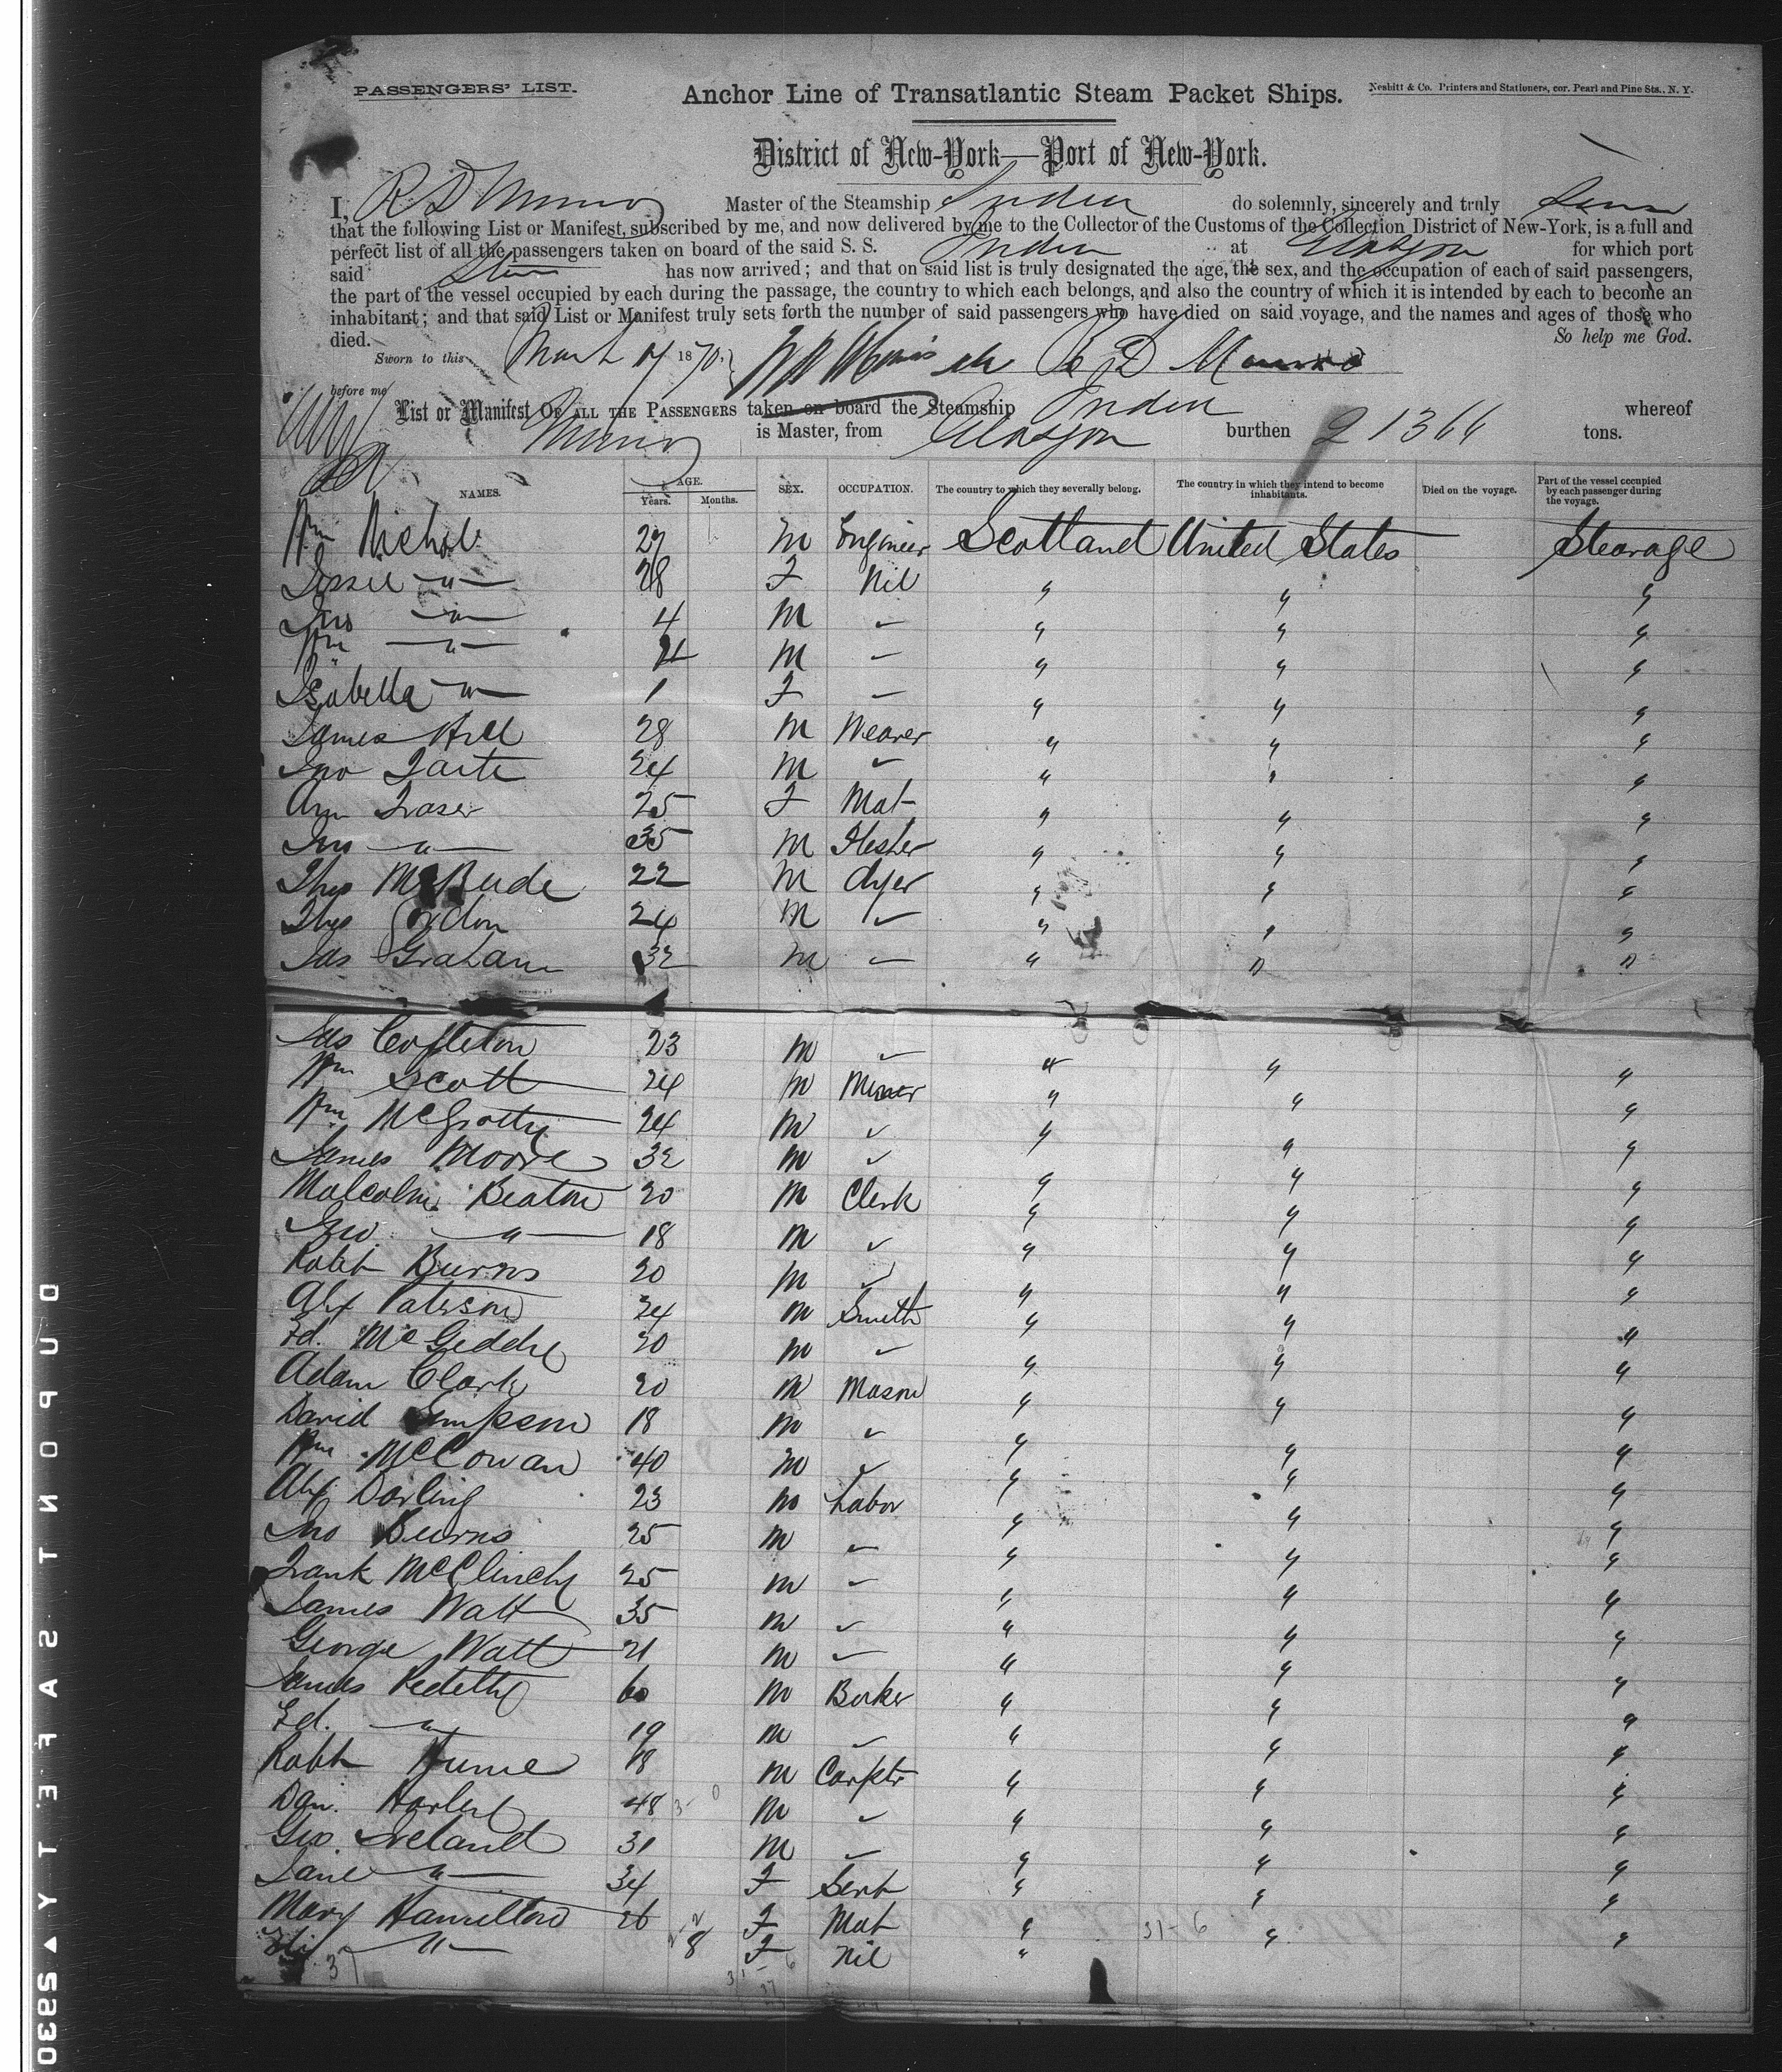 PASSENGERS' LIST.
Anchor Line of Transatlantic Steam Packet Ships.
Nesbitt & Co. Printers and Stationers, cor. Pearl and Pine Sts., N. Y.
District of New-York—Port of New-York.
I, R D Munro Master of the Steamship India do solemnly, sincerely and truly
that the following List or Manifest, subscribed by me, and now delivered by me to the Collector of the Customs of the Collection District of New-York, is a full and
perfect list of all the passengers taken on board of the said S. S. India at Glasgow for which port
said has now arrived; and that on said list is truly designated the age, the sex, and the occupation of each of said passengers,
the part of the vessel occupied by each during the passage, the country to which each belongs, and also the country of which it is intended by each to become an
inhabitant; and that said List or Manifest truly sets forth the number of said passengers who have died on said voyage, and the names and ages of those who
died. So help me God.
Sworn to this March 17 1870. R D Munro
before me
List or Manifest OF ALL THE PASSENGERS taken on board the Steamship India whereof
Munro is Master, from Glasgow burthen 1366 tons.
NAMES. AGE. Years. Months. SEX. OCCUPATION. The country to which they severally belong. The country in which they intend to become inhabitants. Died on the voyage. Part of the vessel occupied by each passenger during the voyage.
Wm Nichol 27 M Engineer Scotland United States Stearage
Jessie " 28 F Nil " " "
Jno " 4 M " " " "
Wm " M " " " "
Isabella " 1 F " " " "
James Hill 28 M Weaver " " "
Jno 24 M " " " "
Ann Fraser 25 F Mat " " "
Jno " 35 M Flesher " " "
Thos McBride 22 M dyer " " "
Thos Gordon 24 M " " " "
Jas Graham 32 M " " " "
Jas 23 M " " " "
Wm Scott 24 M Miner " " "
Wm McGrotty 24 M " " " "
James Moore 32 M " " " "
Malcolm Beaton 20 M Clerk " " "
Jno " 18 M " " " "
Robt Burns 20 M " " " "
Alex Paterson 24 M Smith " " "
Ed. 20 M " " " "
Adam Clark 20 M Mason " " "
David Simpson 18 M " " " "
Wm McCowan 40 M " " " "
Alex Darling 23 M Labor " " "
Jno Burns 25 M " " " "
Frank McClinchy 25 M " " " "
James Watt 35 M " " " "
George Watt 21 M " " " "
James 60 M " " "
Ed. " 19 M " " " "
Robt Hume 18 M Carptr " " "
Dan. 48 M " " " "
Geo Ireland 31 M " " " "
Jane " 34 F Servt " " "
Mary Hamilton 26 F Mat " " "
" 8 F Nil "
37
31-6
DUPONT SAFETY